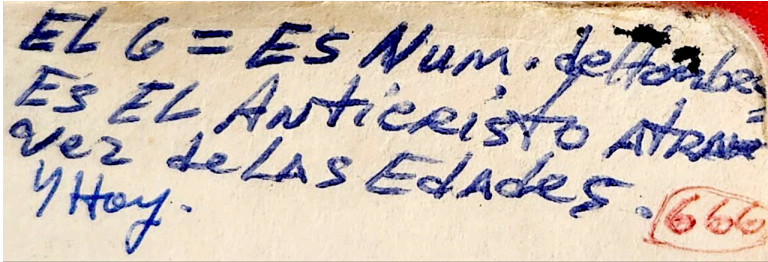 EL 6 = Es Num. del Hombre=
Es EL Anticristo Atra
vez de LAS EdAdes.
y Hoy.
666